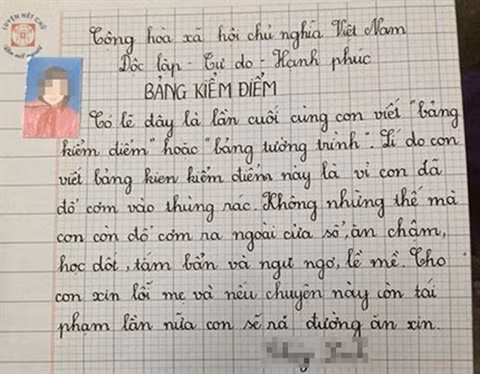 LUYỆN NÉT CHỮ
Rèn nết người
Công hòa xã hội chủ nghĩa Việt Nam
Dộc lập - Tự do - Hạnh phúc
BẢNG KIỂM ĐIỂM
Có lẽ dây là lần cuối cùng con viết "bảng
kiểm diểm" hoặc "bảng tường trình". Lí do con
viết bảng kien kiểm diểm này là vì con đã
đổ cơm vào thùng rac. Không những thế mà
con còn đổ cơm ra ngoài cửa sổ, ăn châm,
học dốt, tắm bẩn và ngư ngơ, lề mề. Cho
con xin lỗi me và nếu chuyện này còn tái
phạm lần nữa con sẽ rả đường ăn xin.